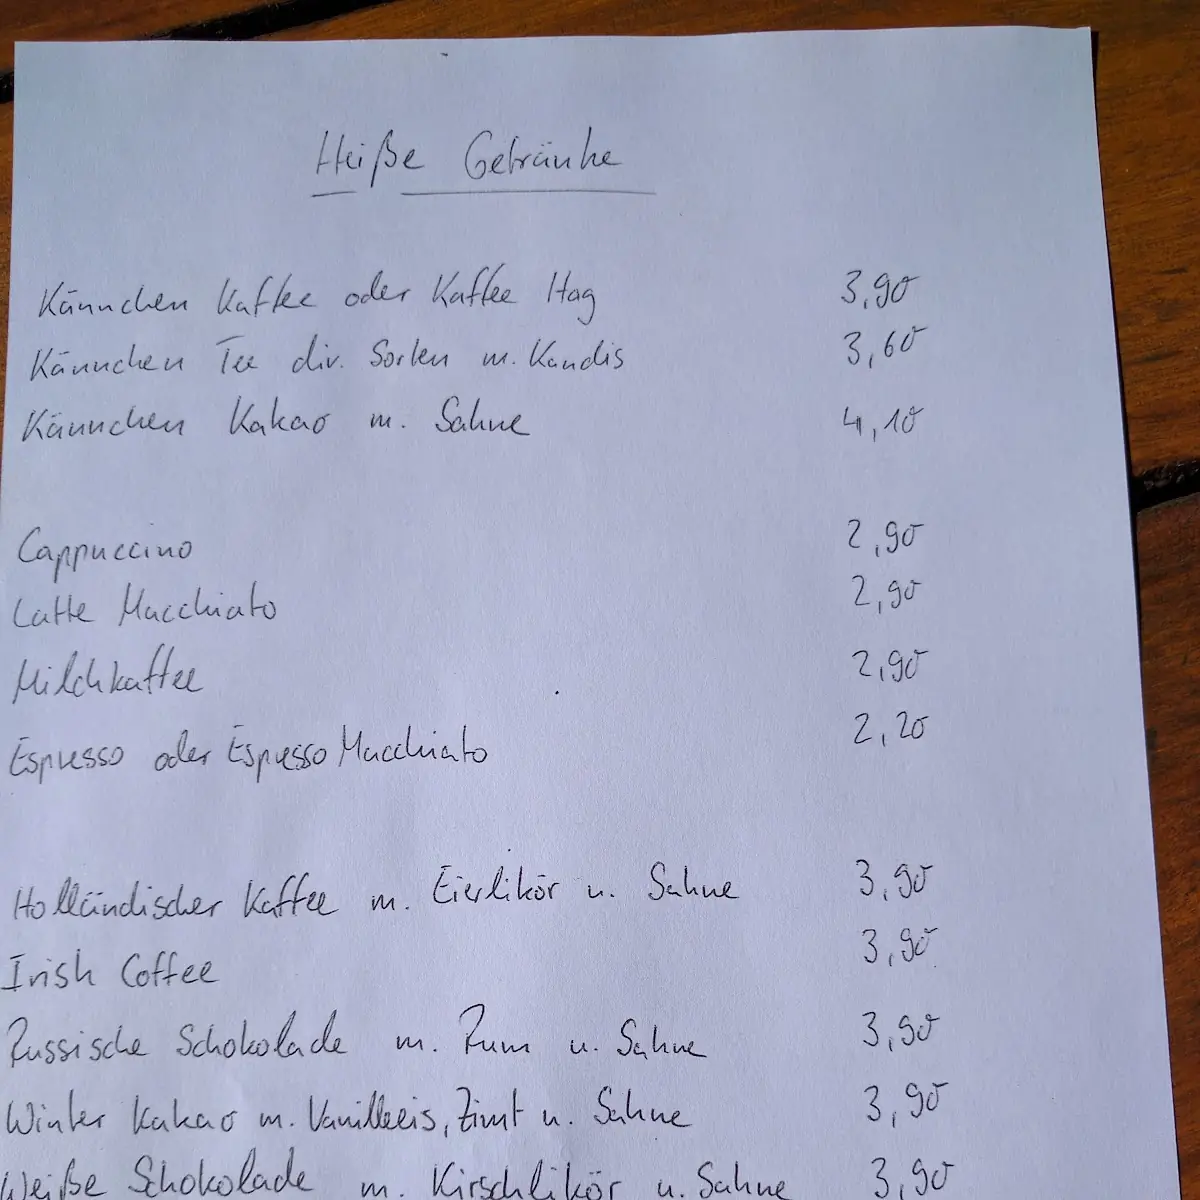 Heiße Getränke
Kännchen Kaffee oder Kaffee Hag 3,90
Kännchen Tee div. Sorten m. Kandis 3,60
Kännchen Kakao m. Sahne 4,10
Cappuccino 2,90
Latte Macchiato 2,90
Milchkaffee 2,90
Espresso oder Espresso Macchiato 2,20
Holländischer Kaffee m. Eierlikör u. Sahne 3,90
Irish Coffee 3,90
Russische Schokolade m. Rum u. Sahne 3,90
Winter Kakao m. Vanilleeis, Zimt u. Sahne 3,90
Weiße Schokolade m. Kirschlikör u. Sahne 3,90